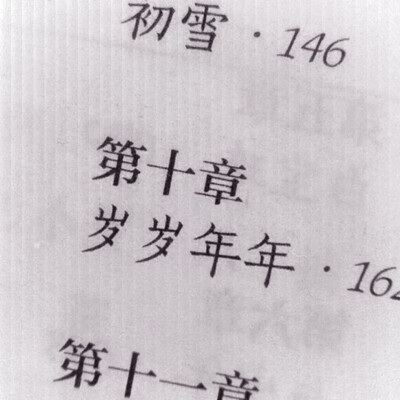 初雪 · 146
第十章
岁岁年年 · 162
第十一章